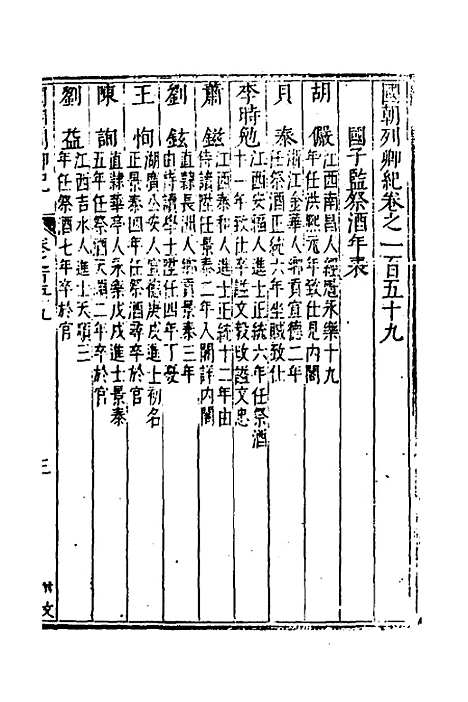 國朝列卿紀卷之一百五十九
國子監祭酒年表
胡儼 江西南昌人經魁永樂十九
年任洪熙元年致仕見內閣
貝泰 浙江金華人鄉貢宣德二年
任祭酒正統六年坐贓致仕
李時勉 江西安福人進士正統六年任祭酒
十二年致仕卒謚文毅改謚文忠
蕭鎡 江西泰和人進士正統十二年由
侍讀陞任景泰二年入閣詳內閣
劉鉉 直隸長洲人鄉貢景泰三年
由侍讀學士陞任四年丁憂
王恂 湖廣公安人宣德庚戌進士初名
正景泰四年任祭酒尋卒於官
陳詢 直隸華亭人永樂戊戌進士景泰
五年任祭酒天順二年卒於官
劉益 江西吉水人進士天順三
年任祭酒七年卒於官
三